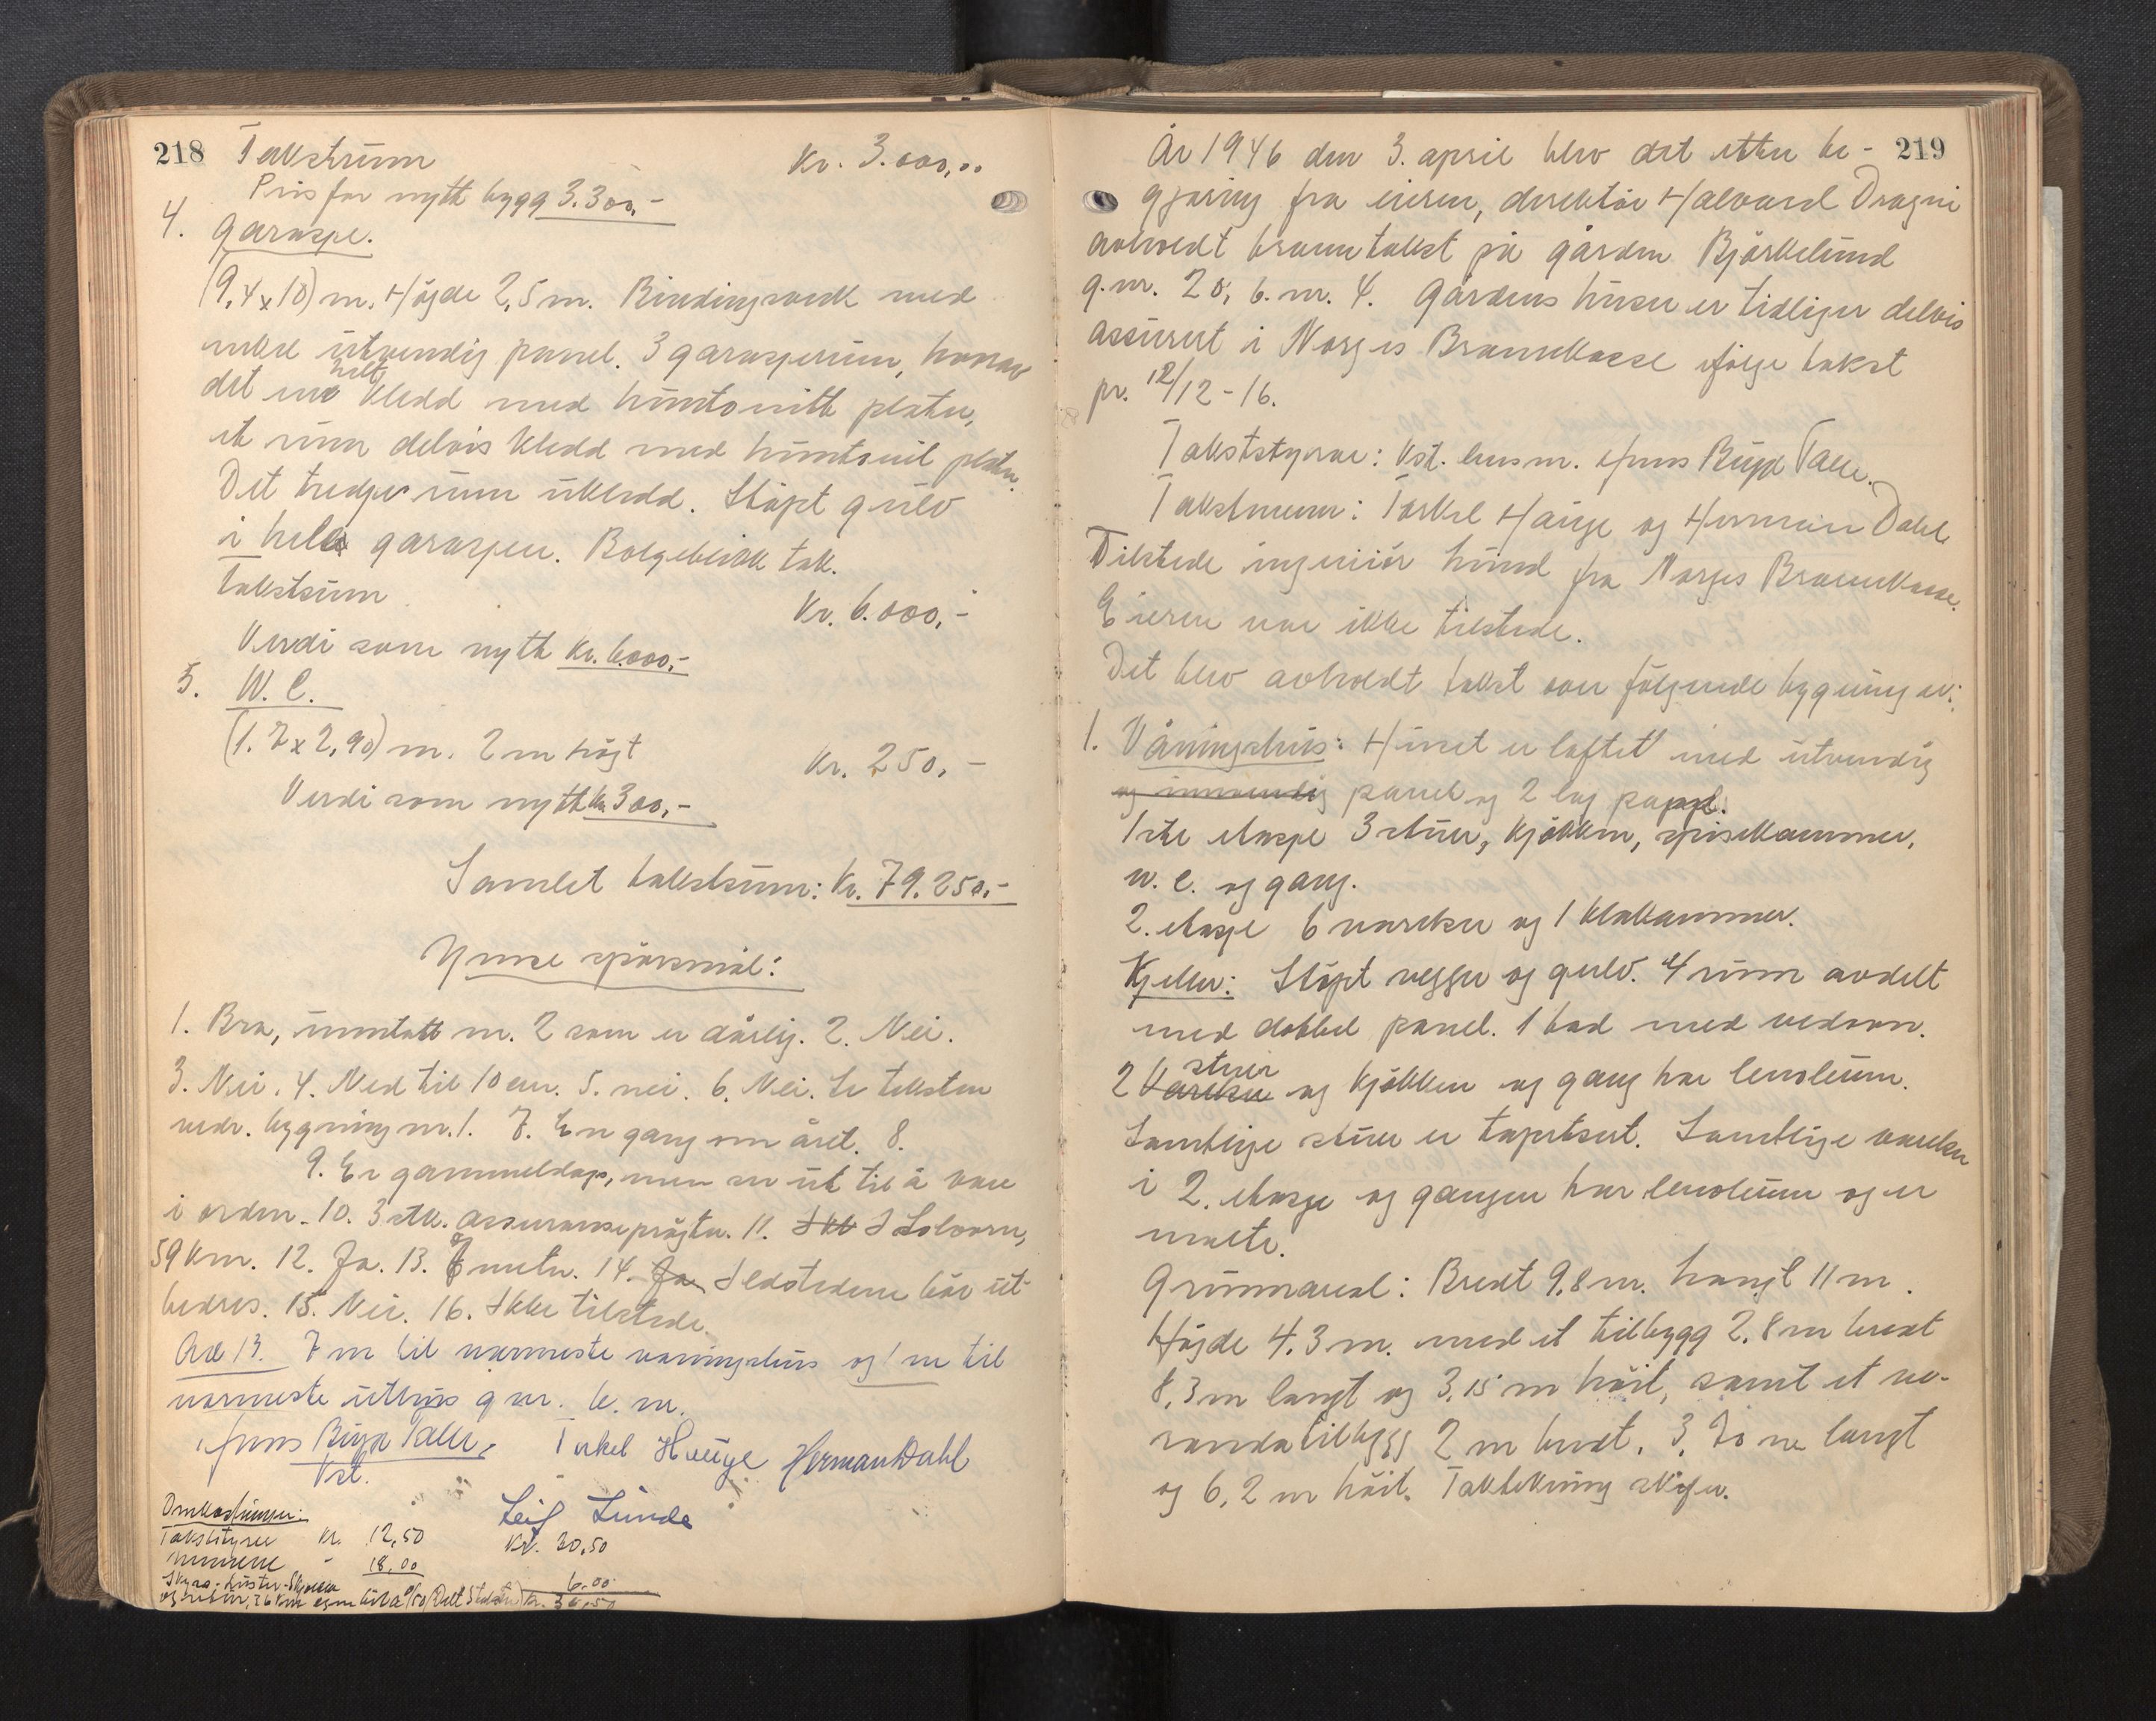 218 Takstsum Kr. 3.000,00
Pris for nytt bygg 3.300,-
4. Garasje.
(9,4 x 10) m. Høgde 2,5 m. Bindingsverk med
enkel utvendig panel. 3 garasjerum, hvorav
det ene helt kledd med huntonitt plater,
et rum delvis kledd med huntonit plater.
Det tredje rum ukledd. Støpt gulv
i hele garasjen. Bølgeblikk tak.
Takstsum Kr. 6.000,-
Verdi som nytt kr. 6.000,-
5. W. C.
(1.7 x 2,90) m. 2 m høgt Kr. 250,-
Verdi som nytt kr. 300,-
Samlet takstsum: Kr. 79.250,-
Ymse spørsmål:
1. Bra, unntatt nr. 2 som er dårlig. 2. Nei.
3. Nei. 4. Ned til 10 cm. 5. nei. 6. Nei. Se teksten
vedr. bygning nr. 1. 7. En gang om året. 8.
9. Er gammeldags, men ser ut til å være
i orden. 10. 3 stk. assuransesprøjter. 11. I Solvorn,
59 km. 12. Ja. 13. 6 meter. 14. Ja Ildstedene bør ut-
bedres. 15. Nei. 16. Ikke tilstede.
Ad 13. 7 m til nærmeste våningshus og 1 m til
nærmeste uthus g nr. b. nr.
Jens Bugge Talle, Torkel Hauge Herman Dahl
Kst.
Leif Lunde
Omkostninger:
Takststyrer Kr. 12,50 Kr. 30,50
mennene - 18,00
Skyss
6,00
kr. 36,50
År 1946 den 3. april blev det etter be- 219
gjæring fra eieren, direktør Halvard Dragni
avholdt branntakst på gården Bjørkelund
g.nr. 20, b.nr. 4. Gårdens huser er tidliger delvis
assurert i Norges Brannkasse ifølge takst
pr. 12/12-16.
Takststyrer: Kst. lensm. Jens Bugge Talle.
Takstmenn: Torkel Hauge og Herman Dahl
Tilstede ingeniør Lund fra Norges Brannkasse.
Eieren var ikke tilstede.
Det blev avholdt takst over følgende bygninger:
1. Våningshus: Huset er laftet med utvendig
og innvendig panel og 2 lag papp.
1ste etasje 3 stuer, kjøkken, spisekammer,
w. c. og gang.
2. etasje 6 værelser og 1 klekammer.
Kjeller: Støpt vegger og gulv. 4 rum avdelt
med dobbel panel. 1 bad med vedovn.
stuer
2 værelser og kjøkken og gang har lenoleum.
Samtlige stuer er tapetsert. Samtlige værelser
i 2. etasje og gangen har lenoleum og er
malte.
Grunnareal: Bredt 9,8 m. langt 11 m.
Høgde 4.3 m. med et tilbygg 2.8 m bredt
8,3 m langt og 3,15 m høit, samt et ve-
randatilbygg 2 m bredt, 3,70 m langt
og 6,2 m høit. Taktekning skifer.